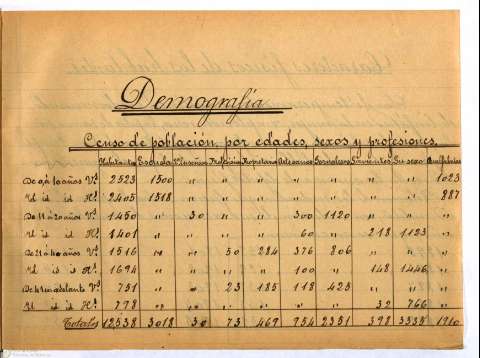 Demografía
Censo de población por edades, sexos y profesiones.
Habitants Escuela 2ª enseña Profesión Propetario Artesanos Jornaleros Sirvientes Su sexo Analfabetos
De 0 á 10 años V.s 2523 1500 " " " " " " " 1023
Id id id H.s 2405 1518 " " " " " " " 887
De 11 á 20 años V.s 1450 " 30 " " 300 1120 " " "
Id id id H.s 1401 " " " " 60 " 218 1123 "
De 21 á 40 años V.s 1516 " " 50 284 376 806 " " "
Id id id H.s 1694 " " " " 100 " 148 1446 "
De 41 en adelante V.s 751 " " 23 185 118 425 " " "
Id id id H.s 778 " " " " " " 32 766 "
Totales 12,538 3018 30 73 469 954 2351 398 3335 1910